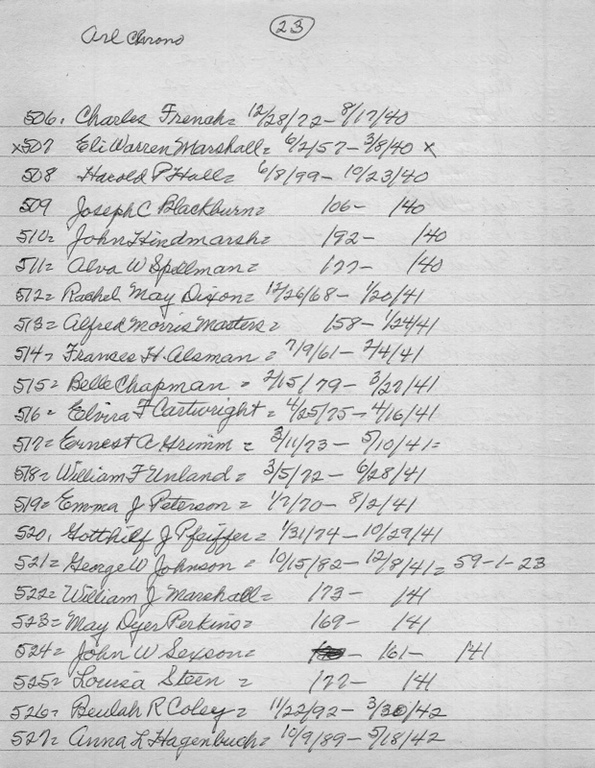 23
Arl Chrono
506. Charles French = 12/28/72 - 8/17/40
x507 Eli Warren Marshall = 6/2/57 - 3/8/40 x
508 Harold P Hall = 6/8/99 - 10/23/40
509 Joseph C Blackburn = /06 - /40
510 = John Hindmarsh = /92 - /40
511 = Alva W Spellman = /77 - /40
512 = Rachel May Dixon = 12/26/68 - 1/20/41
513 = Alfred Morris Masters = /58 - 1/24/41
514 = Frances H. Alsman = 7/9/61 - 2/4/41
515 = Belle Chapman = 2/15/79 - 3/27/41
516 = Elvira F Cartwright = 4/25/75 - 4/16/41
517 = Ernest A Grimm = 3/11/73 - 5/10/41 =
518 = William F Unland = 3/5/72 - 6/28/41
519 = Emma J Peterson = 1/7/70 - 8/2/41
520. Gotthilf J Pfeiffer = 1/31/74 - 10/29/41
521 = George W Johnson = 10/15/82 - 12/8/41 = 59-1-23
522 = William J Marshall = /73 - /41
523 = May Dyer Perkins = /69 - /41
524 = John W Sexson = - /61 - /41
525 = Louisa Steen = /77 - /41
526 = Beulah R Coley = 11/22/92 - 3/30/42
527 = Anna L Hagenbuch = 10/9/89 - 5/18/42